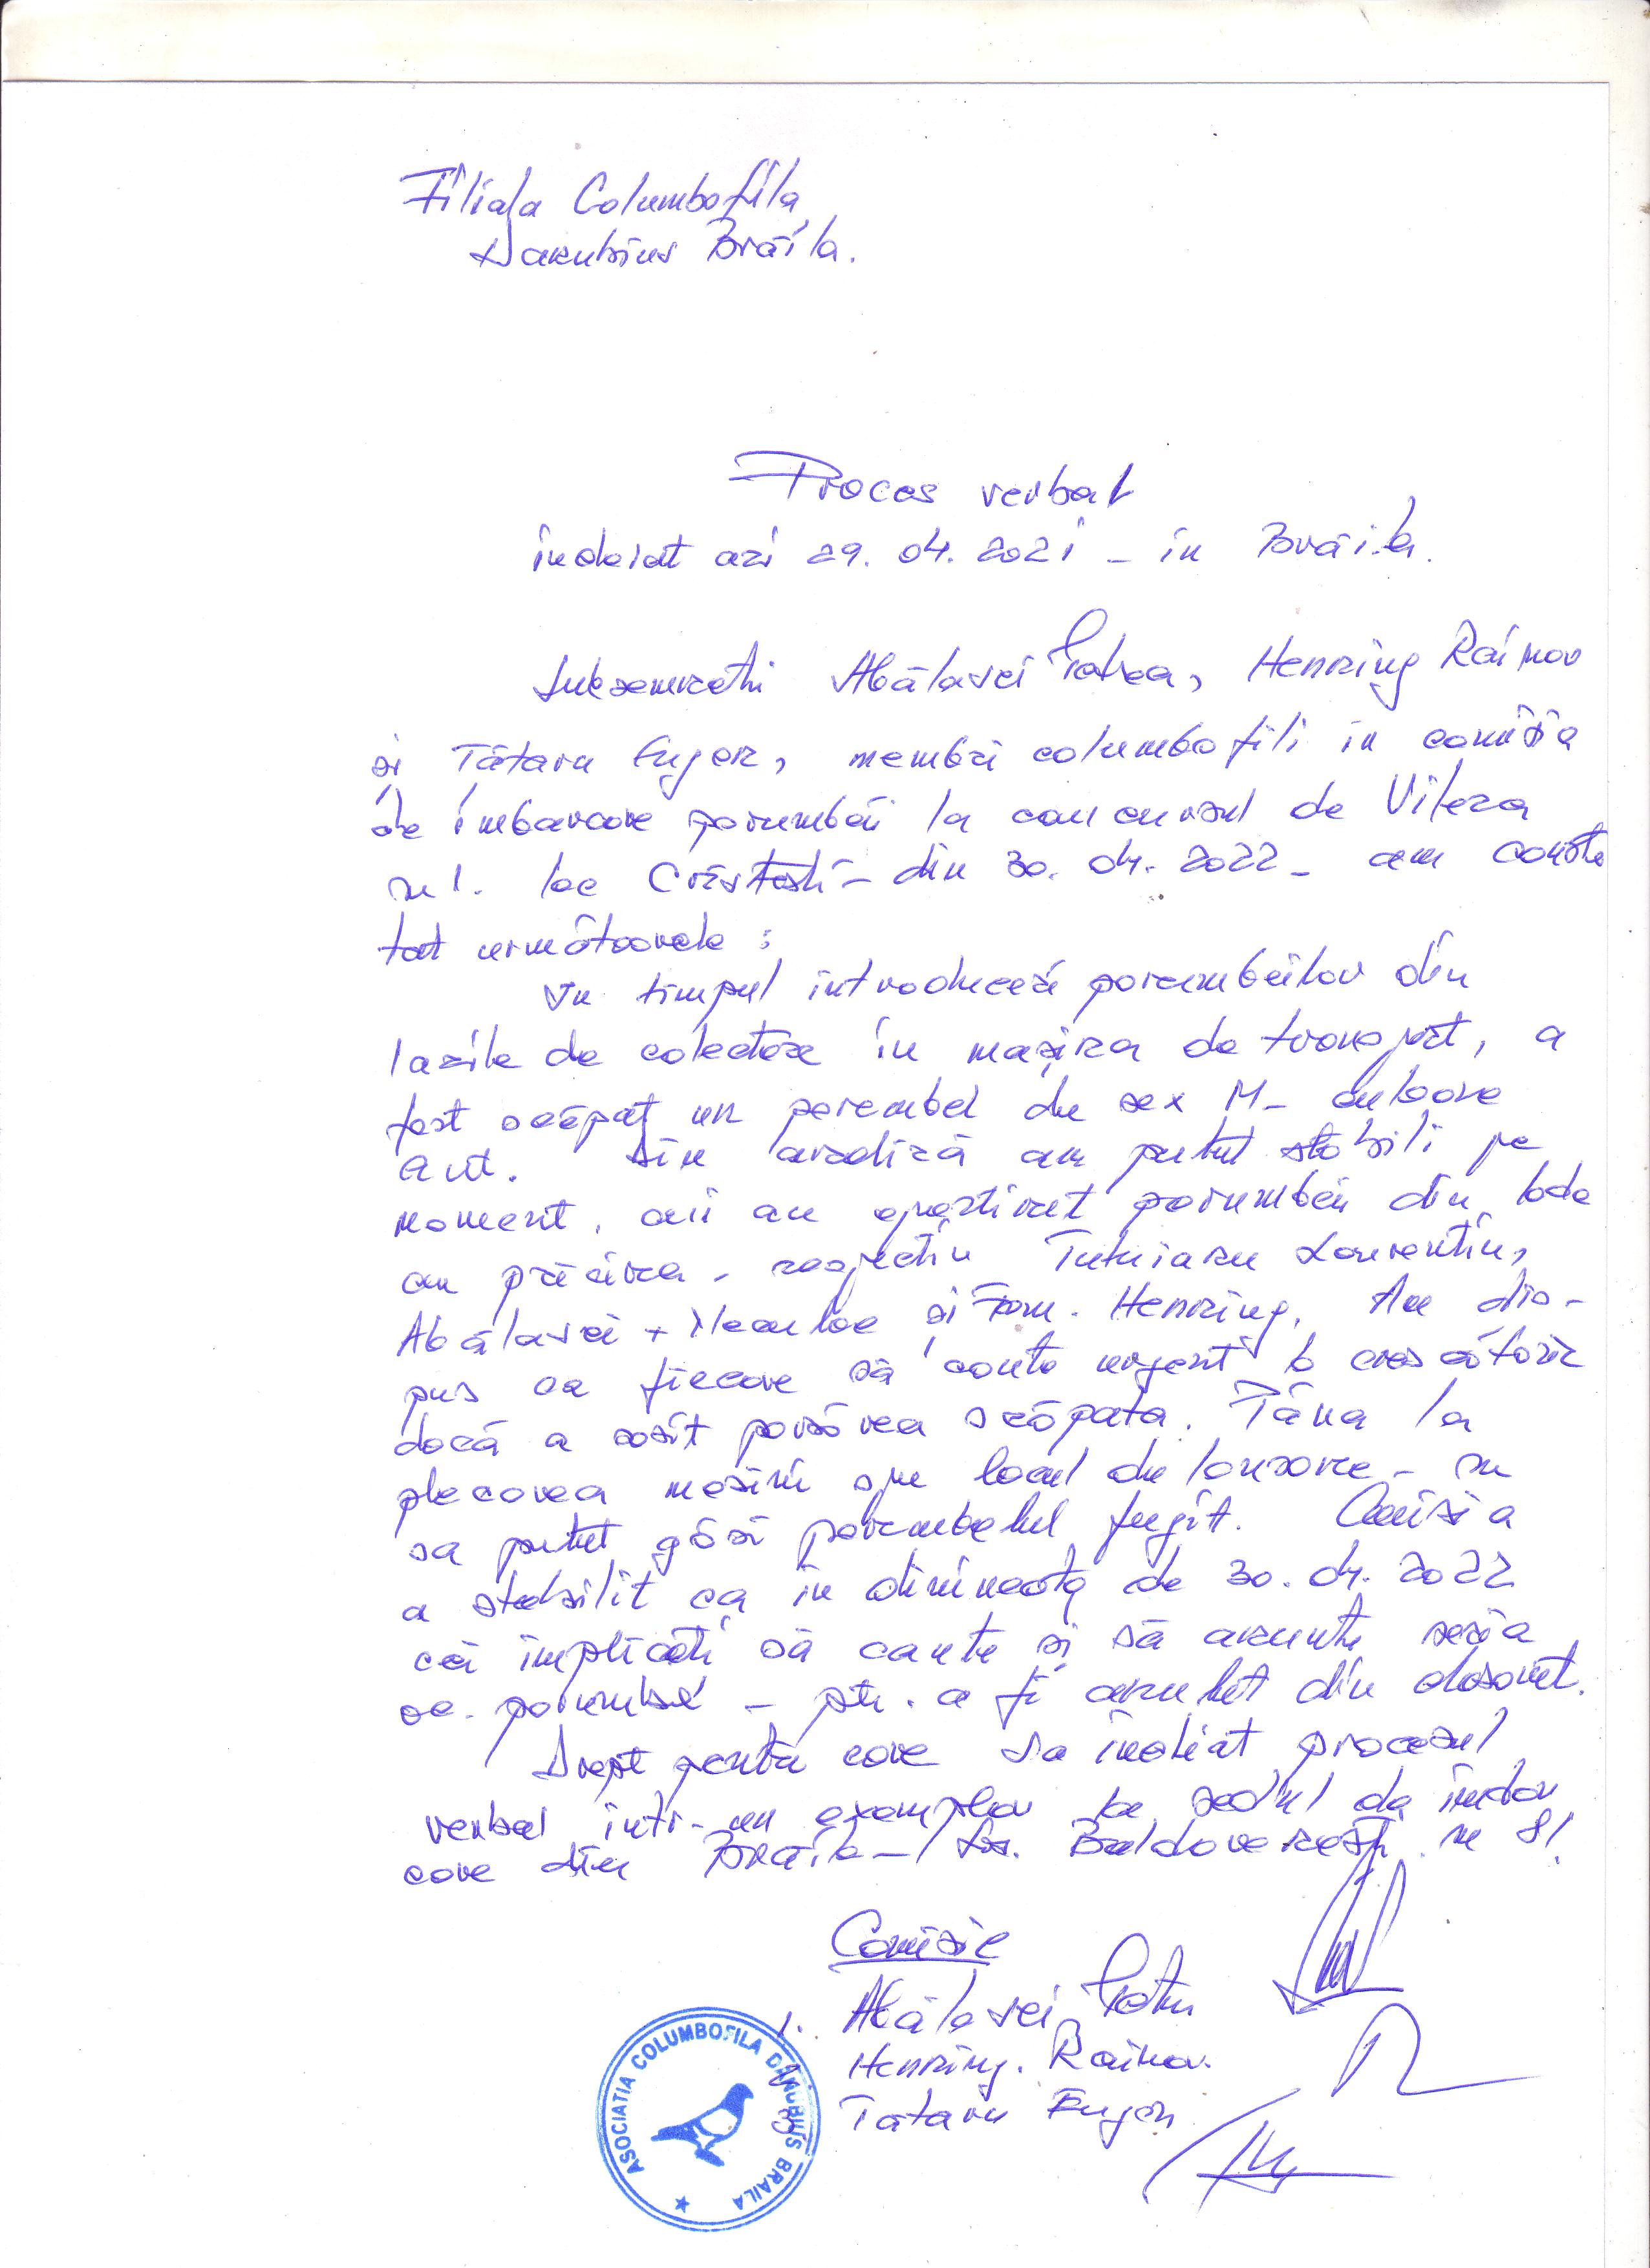 Filiala Columbofila
Danubius Brăila.
Proces verbal
incheiat azi 29. 04. 2021 - in Brăila.
Subsemnatii Abălasei Petrea, Henning Rainov
si Tătaru Eugen, membri columbofili in comisia
de îmbarcare porumbei la concursul de Viteza
nr 1. loc Cristesti - din 30. 04. 2022 - am consta
tat următoarele :
In timpul introducerii porumbeilor din
lazile de colectare in mașina de transport, a
fost scăpat un porumbel de sex M - culoare
Din analiză am putut stabili pe
moment, cii au porumbeii din lada
cu pricina - respectiv Tutuianu Laurentiu,
Abălasei + Neculae si Fam. Henning. Am dis-
pus ca fiecare să caute urgent la crescătorie
dacă a sosit pasărea scăpata. Pâna la
plecarea masinii spre locul de lansare - nu
sa putut găsi porumbelul fugit. Comisia
a stabilit ca in dimineata de 30. 04. 2022
cei implicati să caute si să anunte seria
porumbel - ptr. a fi anulat din
Drept pentru care sa incheiat procesul
verbal intr-un exemplar la sediul de imbar
care din Brăila - Baldovenesti nr 81.
Comisie
1. Abălasei Petru
Henning. Rainov.
3 Tataru Eugen
ASOCIATIA COLUMBOFILA DANUBIUS BRAILA